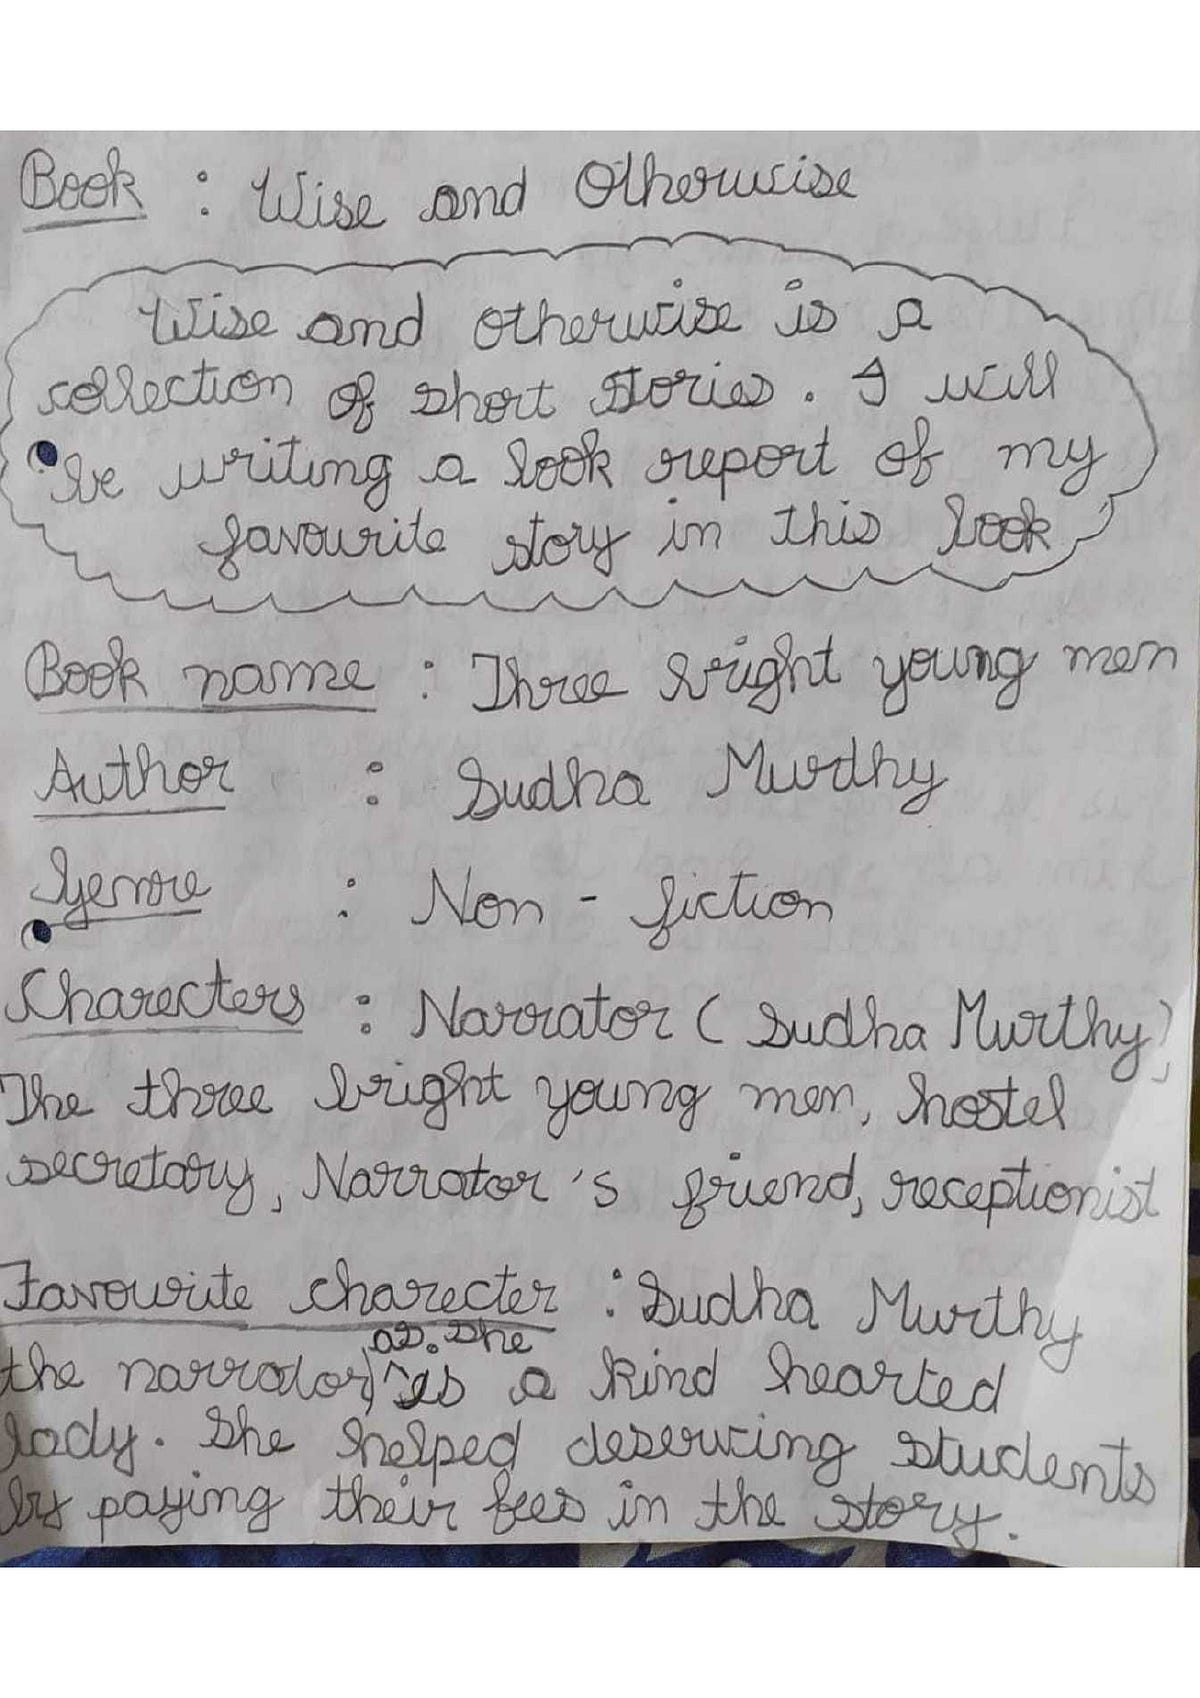 Book : Wise and Otherwise
Wise and otherwise is a
collection of short stories. I will
be writing a book report of my
favourite story in this book
Book name : Three bright young men
Author : Sudha Murthy
Genre : Non - fiction
Charecters : Narrator ( Sudha Murthy),
The three bright young men, hostel
secretary, Narrator's friend, receptionist
Favourite charecter : Sudha Murthy
as she
the narrator, is a kind hearted
lady. She helped deserving students
by paying their fees in the story.